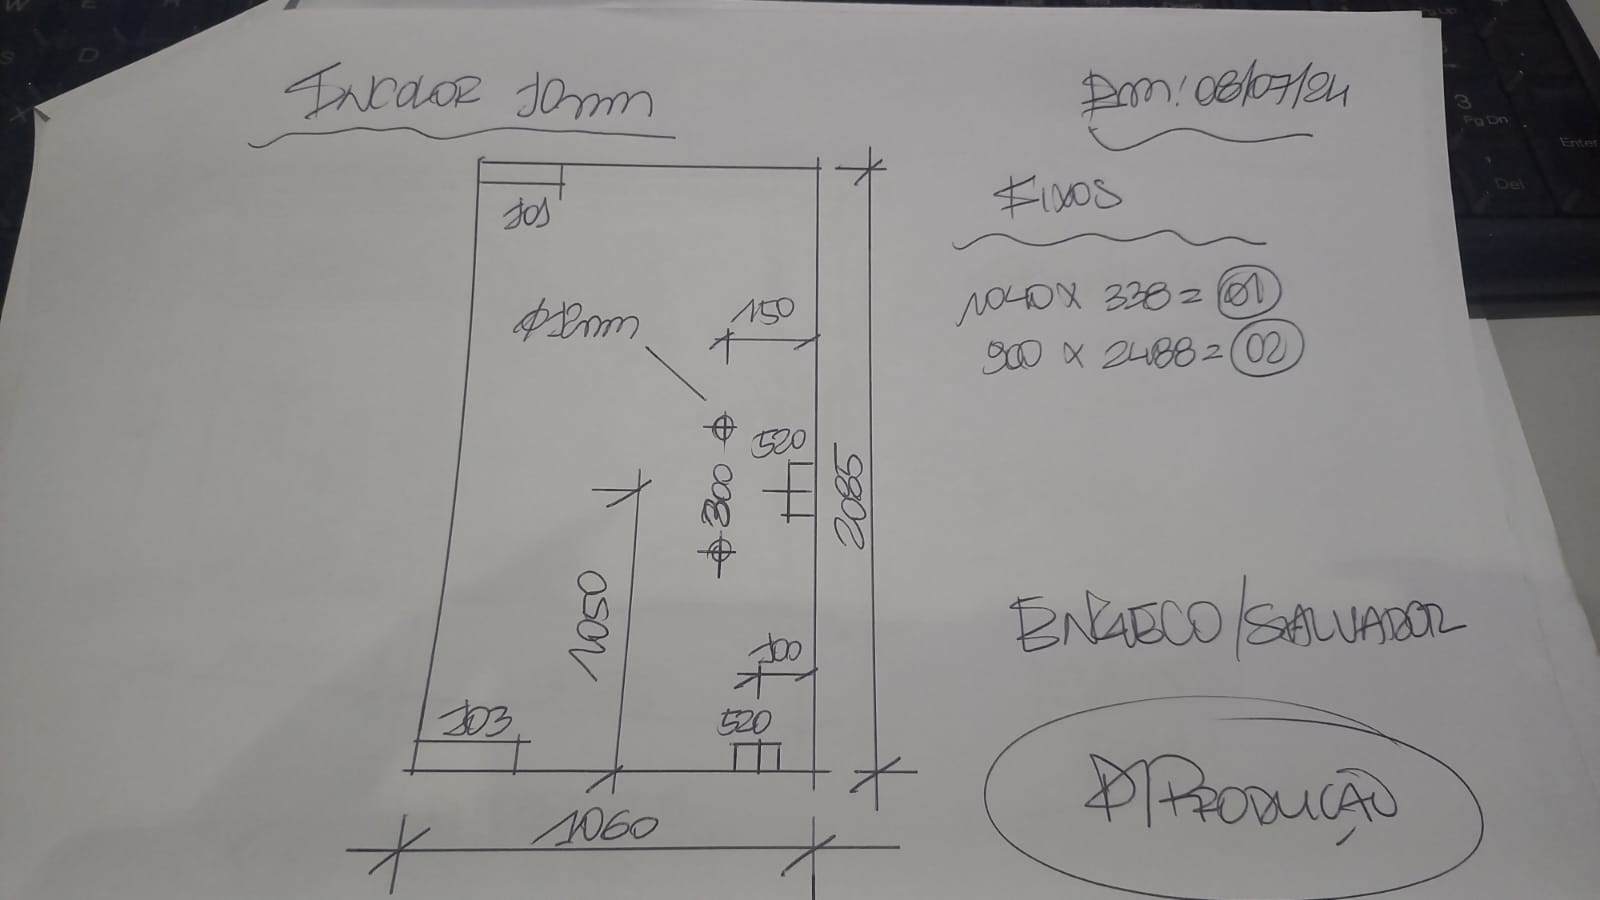 INCOLOR 10mm
Em: 08/07/24
FIXOS
1040 X 338 = 01
900 X 2488 = 02
101
150
Ø12mm
520
300
2085
1050
100
103
520
1060
/SALVADOR
P/PRODUÇÃO